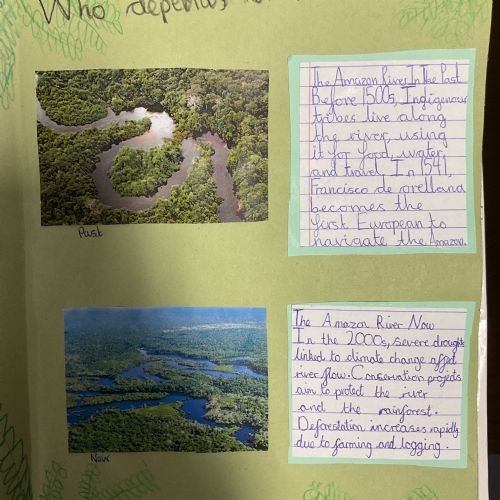 Who depends
The Amazon River In The Past
Before 1500s, Indigenous
tribes live along
the river, using
it for food, water,
and travel. In 1541,
Francisco de orellana
becomes the
first European to
navigate the Amazon.
Past
The Amazon River Now
In the 2000s, severe droughts
linked to climate change affect
river flow. Conservation projects
aim to protect the river
and the rainforest.
Deforestation increases rapidly
due to farming and logging.
Now